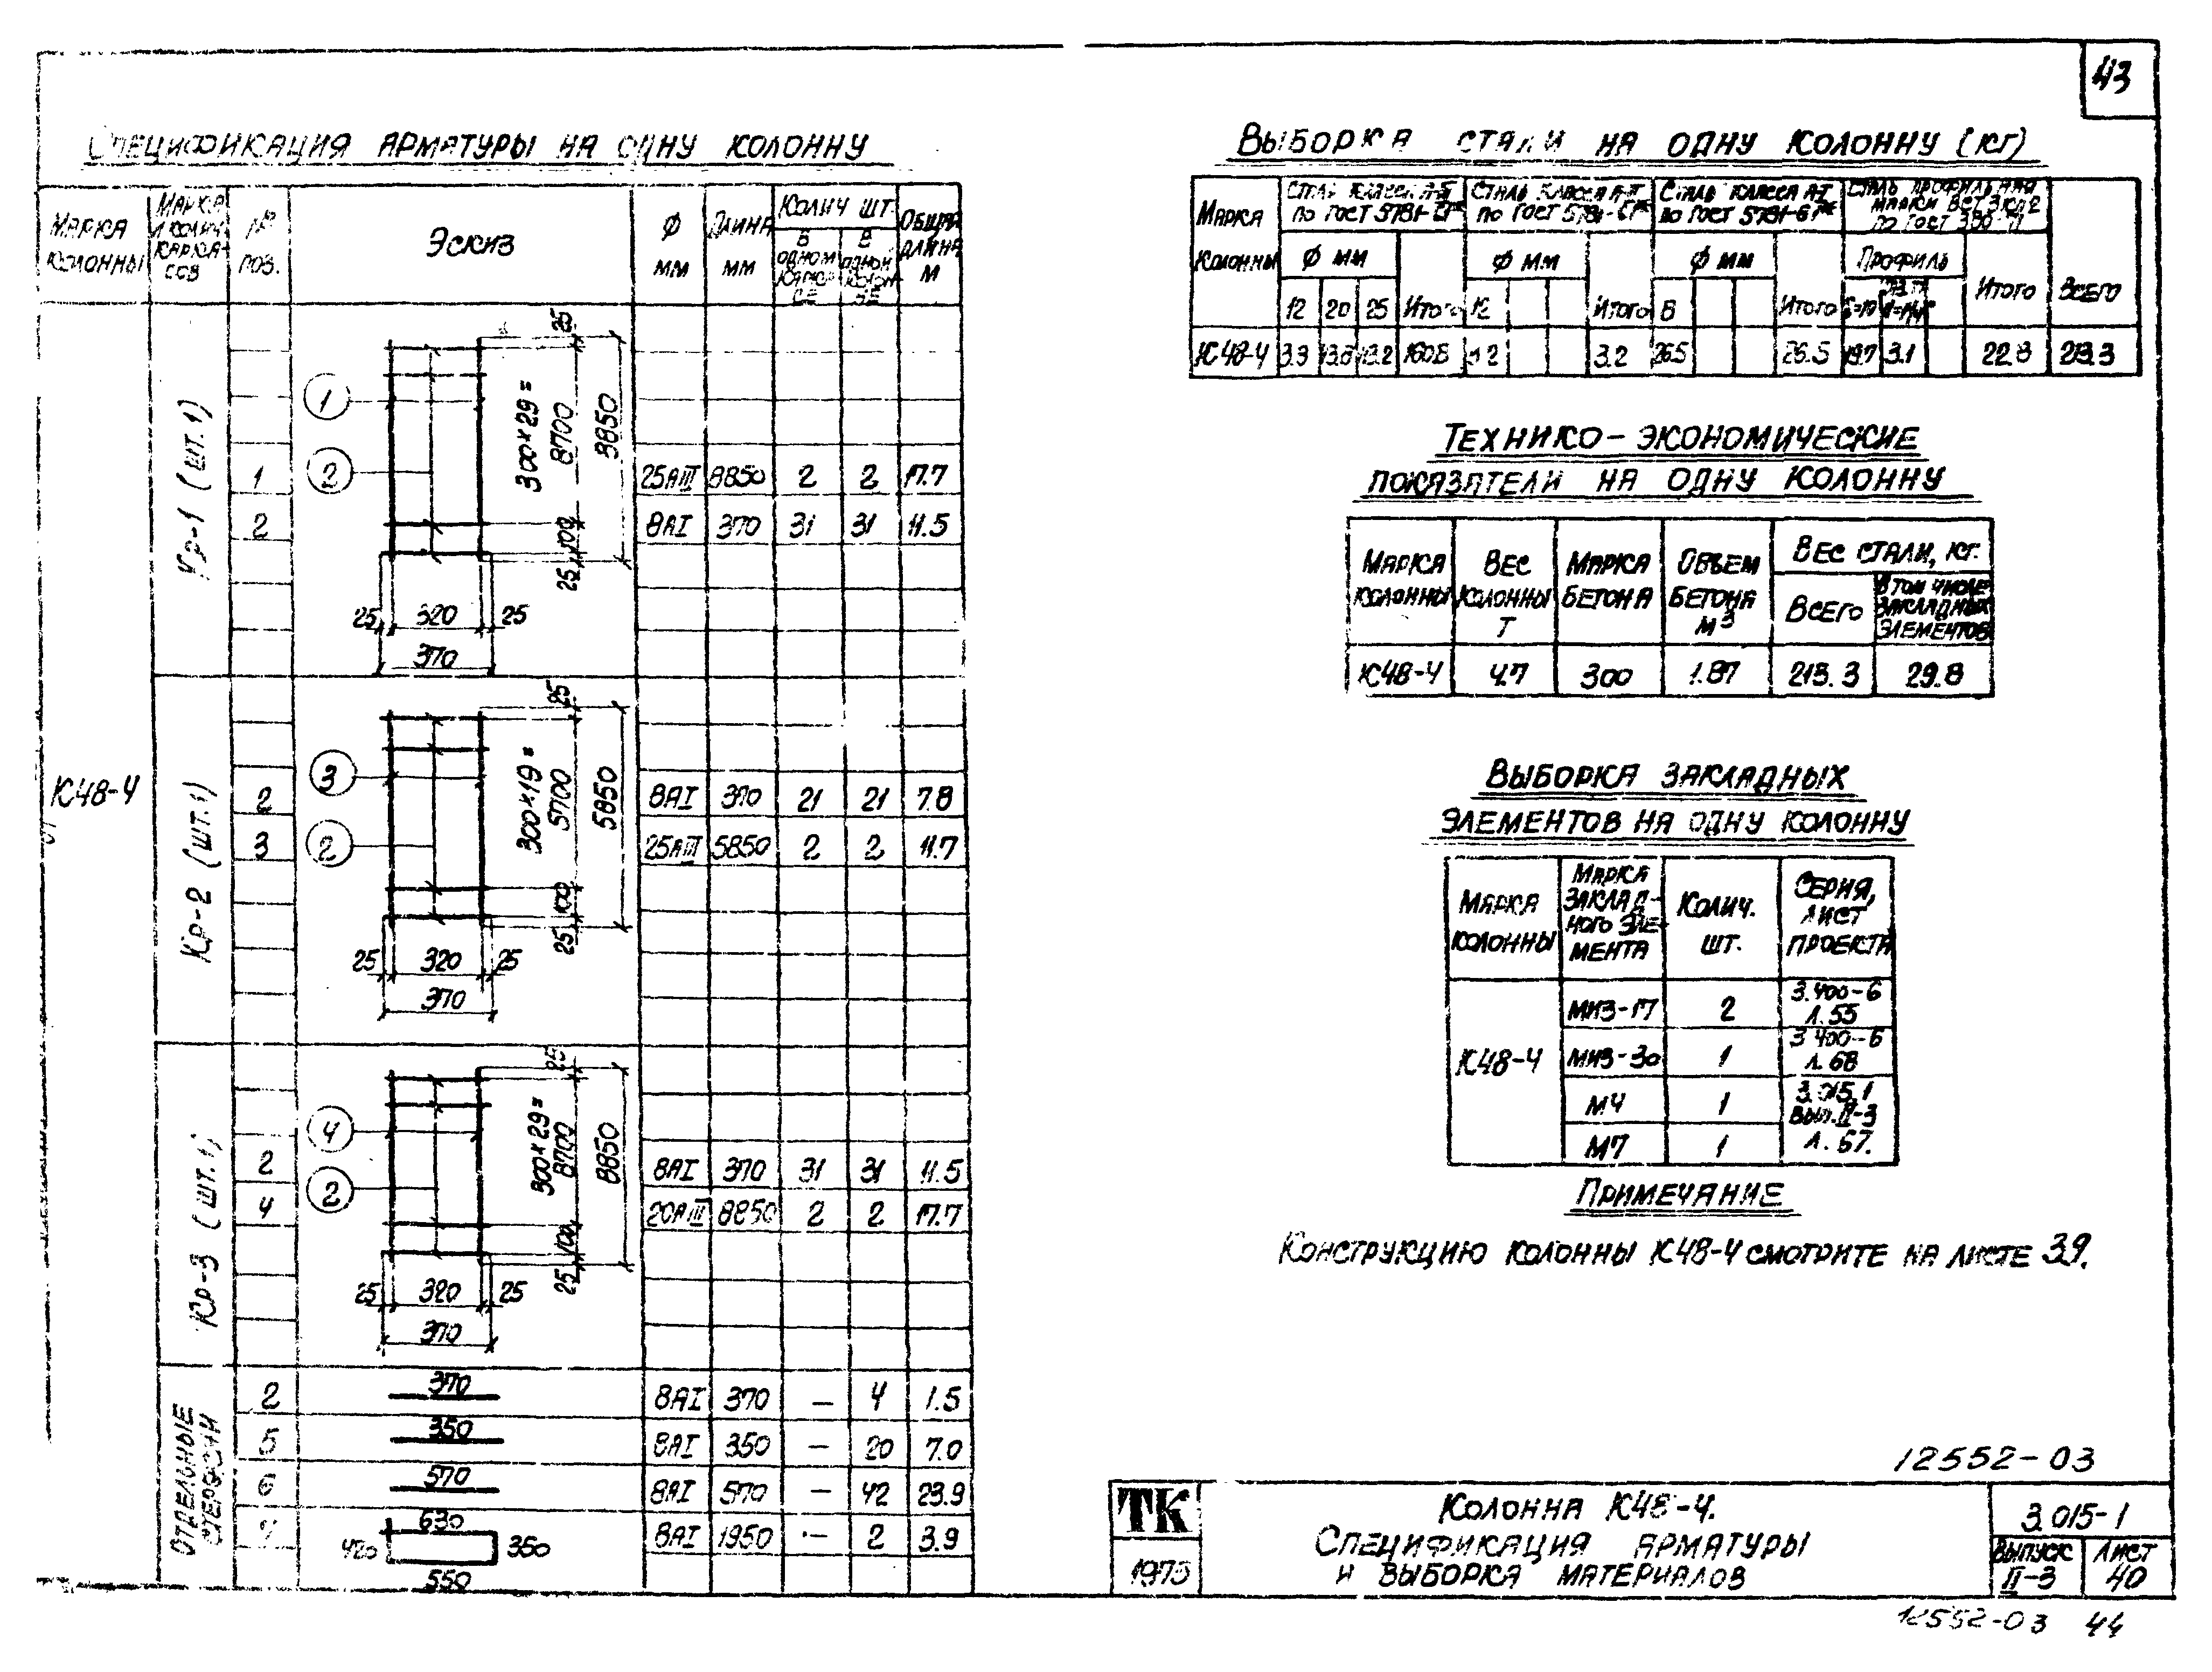 43
Спецификация арматуры на одну колонну
Марка колонны
Марка и колич. каркасов
№ поз.
Эскиз
Ф мм
Длина мм
Колич шт.
В одном каркасе
В одной колонне
Общая длина м
К48-4
Кр-1 (шт.1)
1 25АIII 8850 2 2 17.7
2 8АI 370 31 31 11.5
1
2
25
300×29=
8700
8850
100
25
25 320 25
370
Кр-2 (шт.1)
2 8АI 370 21 21 7.8
3 25АIII 5850 2 2 11.7
3
2
25
300×19=
5700
5850
100
25
25 320 25
370
Кр-3 (шт.1)
2 8АI 370 31 31 11.5
4 20АIII 8850 2 2 17.7
4
2
25
300×29=
8700
8850
100
25
25 320 25
370
Отдельные стержни
2 370 8АI 370 — 4 1.5
5 350 8АI 350 — 20 7.0
6 570 8АI 570 — 42 23.9
7 630 420 350 550 8АI 1950 — 2 3.9
Выборка стали на одну колонну (кг)
Марка колонны
Сталь класса
по ГОСТ
Сталь класса
по ГОСТ
Сталь класса А-I
по ГОСТ
Сталь профильная
марки
по ГОСТ
Ф мм
Ф мм
Ф мм
Профиль
Итого
Всего
12 20 25 Итого 12 Итого Итого
К48-4 3.9 3.2 26.5 26.5 19.7 3.1 22.8
Технико-экономические
показатели на одну колонну
Марка колонны
Вес колонны т
Марка бетона
Объем бетона м3
Вес стали, кг.
Всего
В том числе закладных элементов
К48-4 4.7 300 1.87 213.3 29.8
Выборка закладных
элементов на одну колонну
Марка колонны
Марка закладного элемента
Колич. шт.
Серия, лист проекта
К48-4
МИЗ-17 2 3.400-6 л.55
МИЗ-30 1 3.400-6 л.68
М4 1
М7 1
3.015.1
Вып.II-3
л. 67.
Примечание
Конструкцию колонны К48-4 смотрите на листе 39.
12552-03
ТК
1975
Колонна К48-4.
Спецификация арматуры
и выборка материалов
3.015-1
Выпуск II-3
Лист 40
12552-03 44